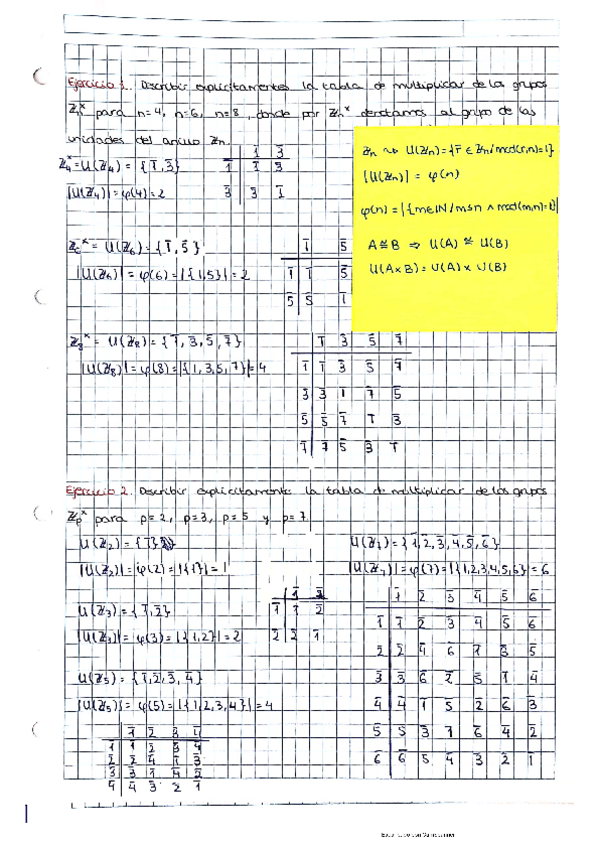 Ejercicio 1. Describir explícitamente la tabla de multiplicar de los grupos
ℤn^x para n=4, n=6, n=8, donde por ℤn^x denotamos al grupo de las
unidades del anillo ℤn.
ℤ4^x = U(ℤ4) = {1̄, 3̄}
|U(ℤ4)| = φ(4) = 2
1̄ 3̄
1̄ 1̄ 3̄
3̄ 3̄ 1̄
ℤn ⇝ U(ℤn) = {r̄ ∈ ℤn / mcd(r,n)=1}
|U(ℤn)| = φ(n)
φ(n) = |{m∈ℕ / m≤n ∧ mcd(m,n)=1}|
A ≅ B ⇒ U(A) ≅ U(B)
U(A×B) = U(A) × U(B)
ℤ6^x = U(ℤ6) = {1̄, 5̄}
|U(ℤ6)| = φ(6) = |{1,5}| = 2
1̄ 5̄
1̄ 1̄ 5̄
5̄ 5̄ 1̄
ℤ8^x = U(ℤ8) = {1̄, 3̄, 5̄, 7̄}
|U(ℤ8)| = φ(8) = |{1, 3, 5, 7}| = 4
1̄ 3̄ 5̄ 7̄
1̄ 1̄ 3̄ 5̄ 7̄
3̄ 3̄ 1 7̄ 5̄
5̄ 5̄ 7̄ 1̄ 3̄
7̄ 7̄ 5̄ 3̄ 1̄
Ejercicio 2. Describir explícitamente la tabla de multiplicar de los grupos
ℤp^x para p=2, p=3, p=5 y p=7
U(ℤ2) = {1̄}
|U(ℤ2)| = φ(2) = |{1}| = 1
U(ℤ3) = {1̄, 2̄}
|U(ℤ3)| = φ(3) = |{1,2}| = 2
1̄ 2̄
1̄ 1̄ 2̄
2̄ 2̄ 1̄
U(ℤ5) = {1̄, 2̄, 3̄, 4̄}
|U(ℤ5)| = φ(5) = |{1, 2, 3, 4}| = 4
1̄ 2̄ 3̄ 4̄
1̄ 1̄ 2̄ 3̄ 4̄
2̄ 2̄ 4̄ 1̄ 3̄
3̄ 3̄ 1̄ 4̄ 2̄
4̄ 4̄ 3̄ 2̄ 1̄
U(ℤ7) = {1̄, 2̄, 3̄, 4̄, 5̄, 6̄}
|U(ℤ7)| = φ(7) = |{1,2,3,4,5,6}| = 6
1̄ 2̄ 3̄ 4̄ 5̄ 6̄
1̄ 1̄ 2̄ 3̄ 4̄ 5̄ 6̄
2̄ 2̄ 4̄ 6̄ 1̄ 3̄ 5̄
3̄ 3̄ 6̄ 2̄ 5̄ 1̄ 4̄
4̄ 4̄ 1̄ 5̄ 2̄ 6̄ 3̄
5̄ 5̄ 3̄ 1̄ 6̄ 4̄ 2̄
6̄ 6̄ 5̄ 4̄ 3̄ 2̄ 1̄
Escaneado con CamScanner